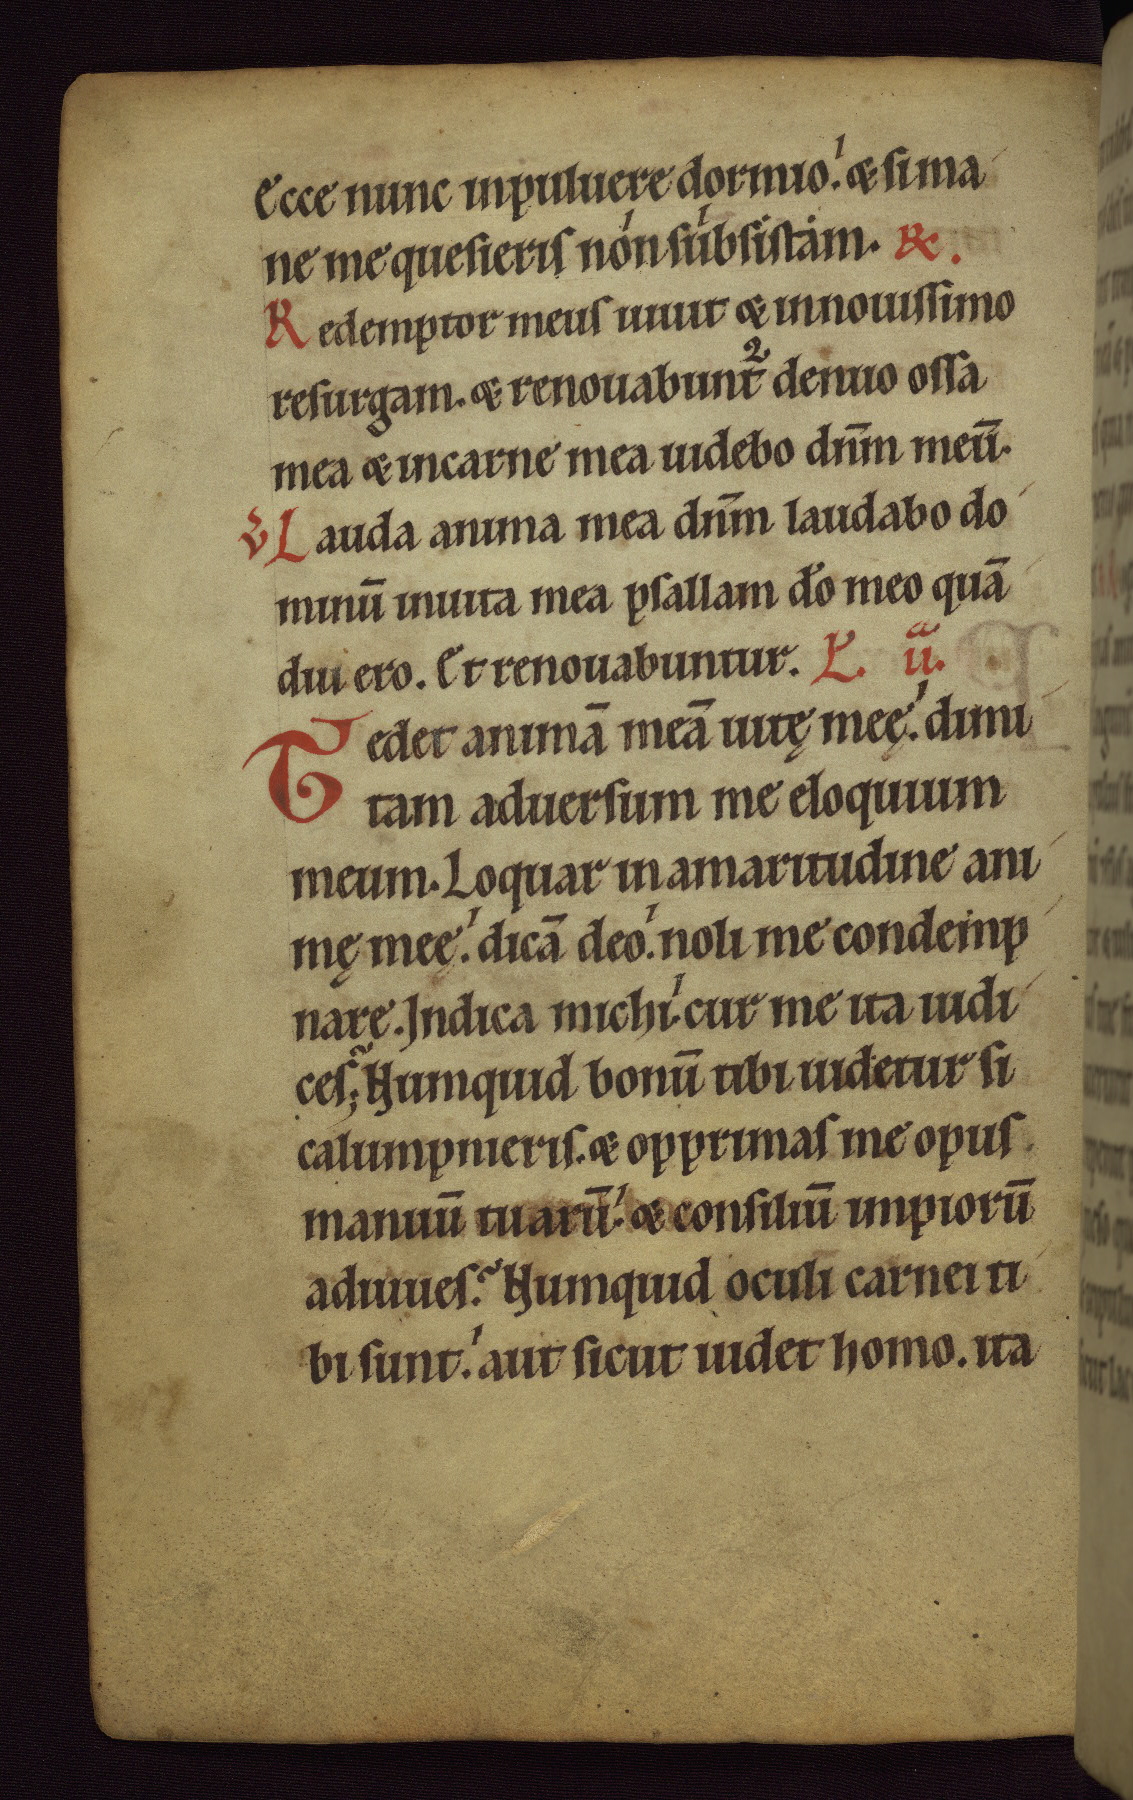 Ecce nunc inpuluere dormio. & si ma
ne me quesieris non subsistam. R&.
Redemptor meus uiuit & innouissimo
resurgam. & renouabunt̃ denuo ossa
mea & incarne mea uidebo dn̄m meū.
V Lauda anima mea dn̄m laudabo do
minū inuita mea psallam do meo quā
diu ero. Et renouabuntur. L. ii.
Tedet animā meā uitę meę. dimi
tam aduersum me eloquium
meum. Loquar in amaritudine ani
mę meę. dicā deo. noli me condemp
nare. Indica michi cur me ita iudi
ces; Numquid bonū tibi uidetur si
calumpnieris. & opprimas me opus
manuū tuarū. & consiliū impiorū
adiuues. Numquid oculi carnei ti
bi sunt. aut sicut uidet homo. ita